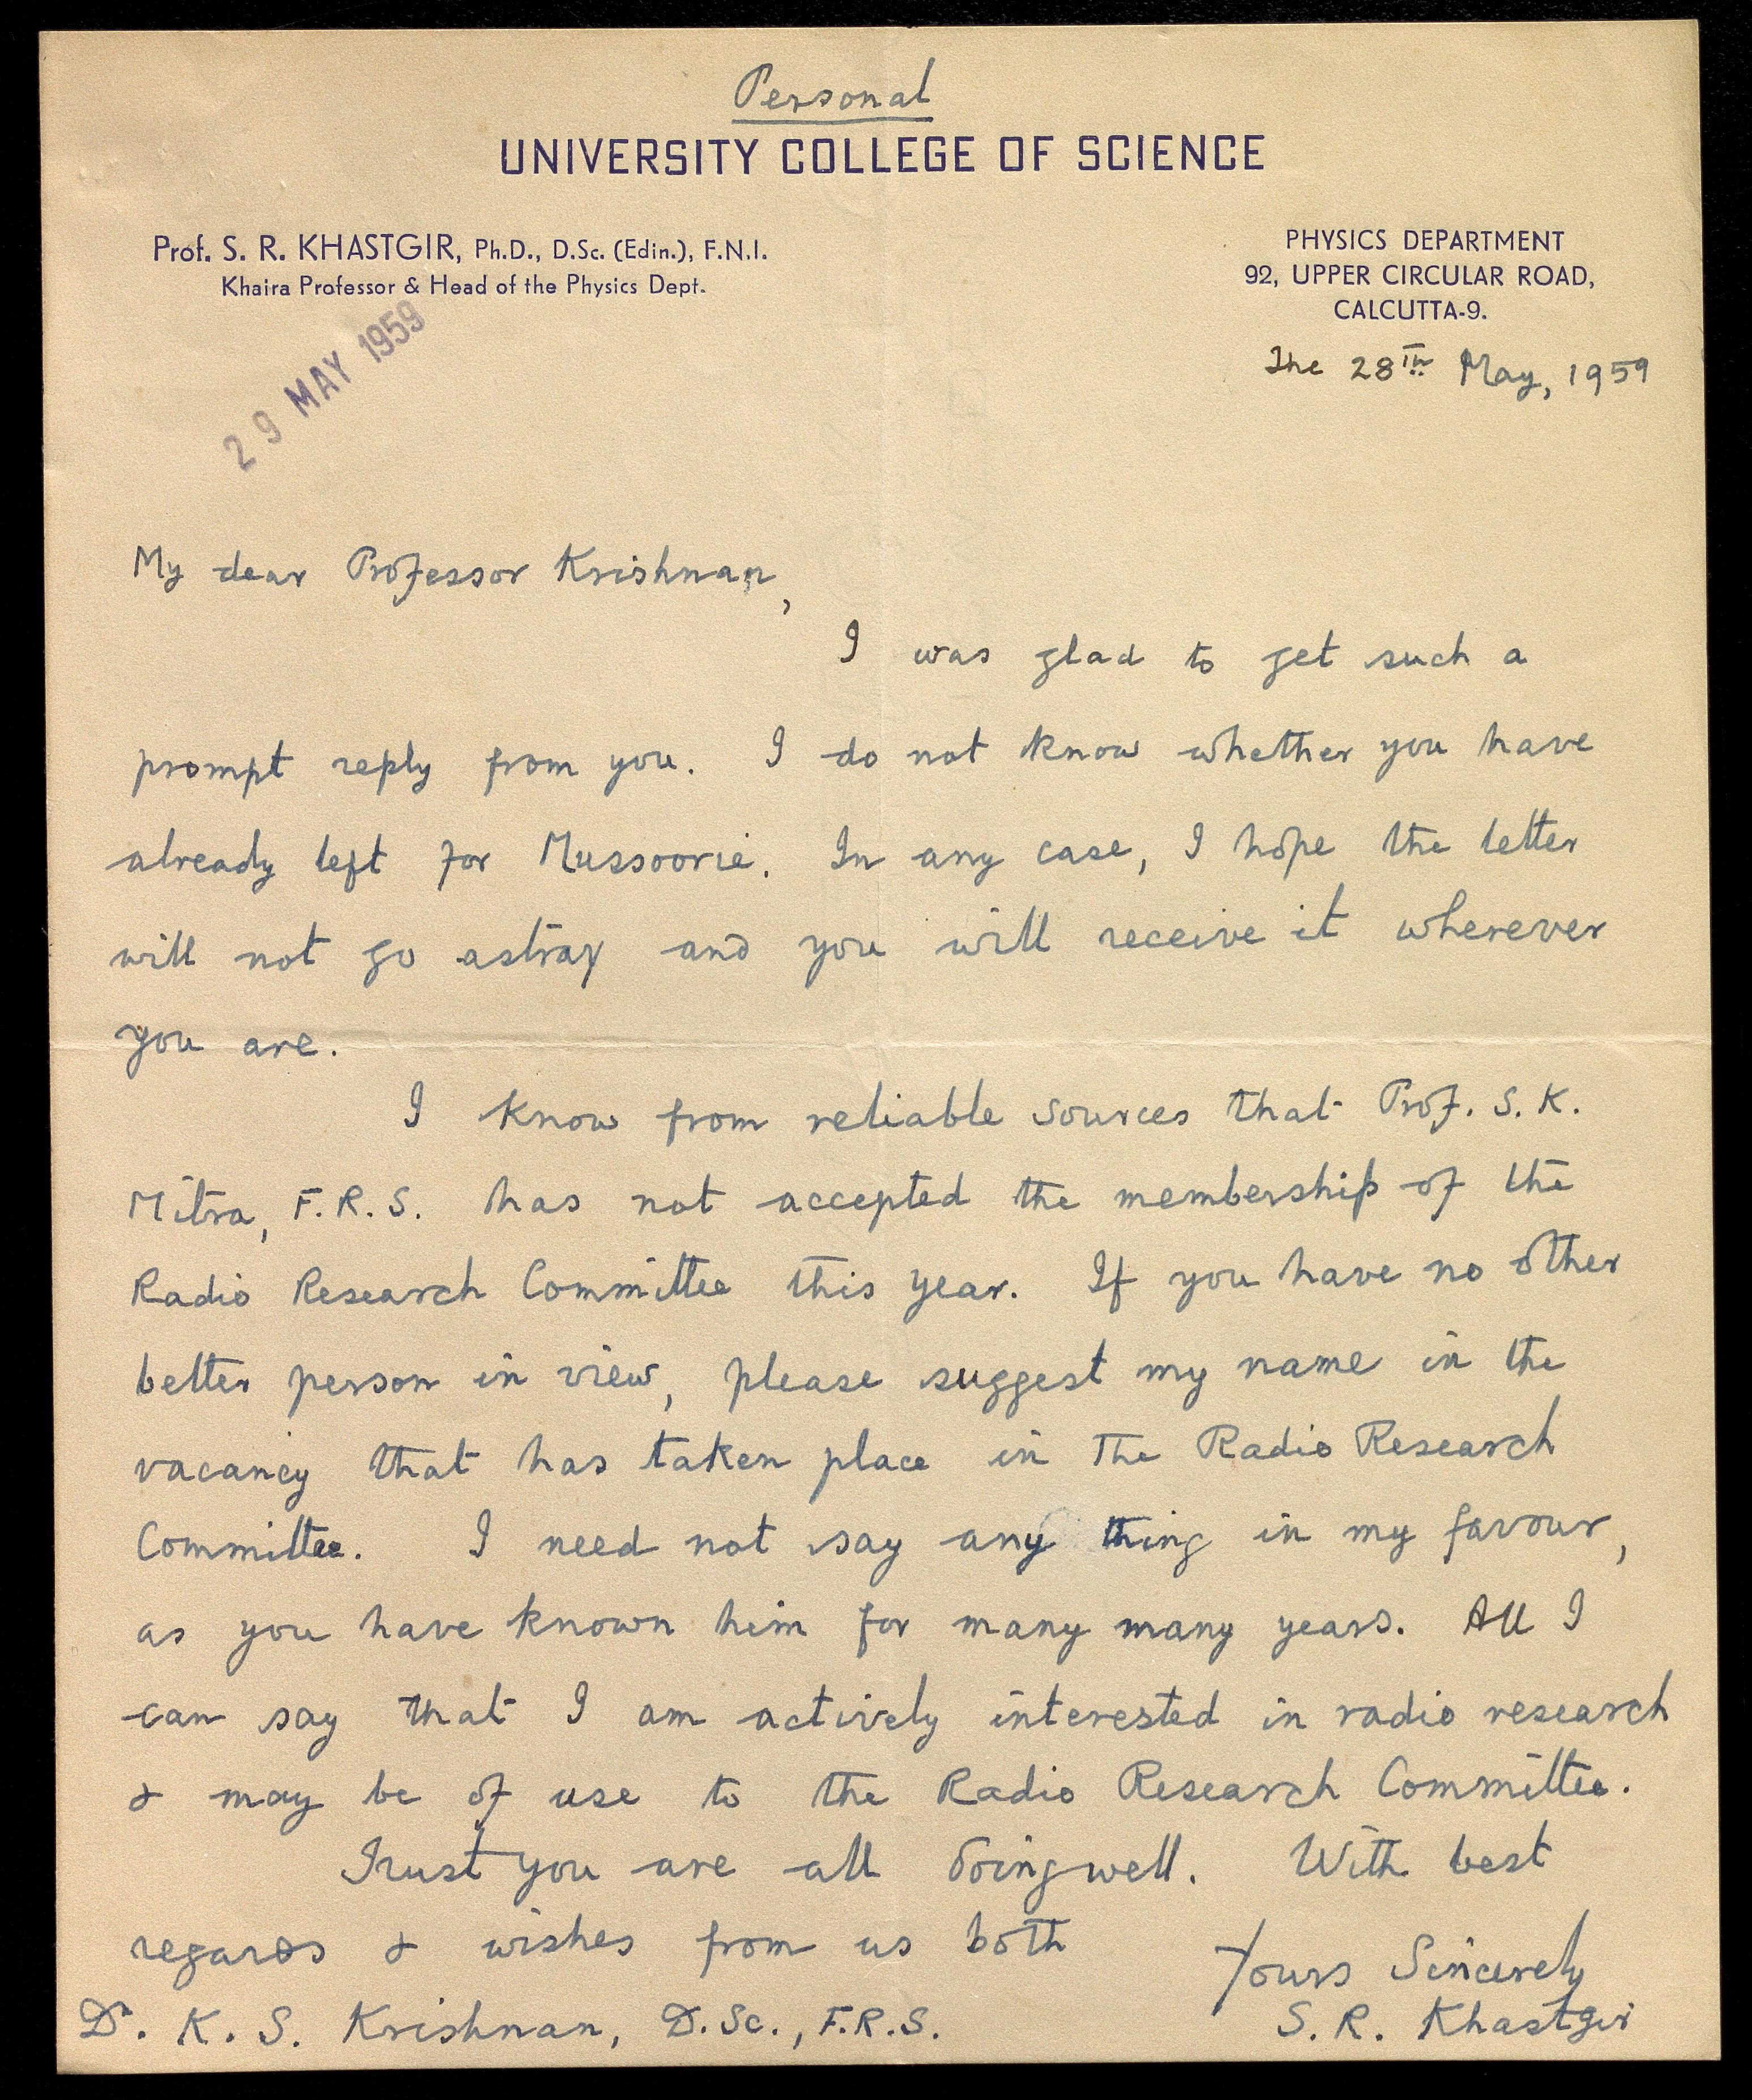 Personal
UNIVERSITY COLLEGE OF SCIENCE
Prof. S. R. KHASTGIR, Ph.D., D.Sc. (Edin.), F.N.I.
Khaira Professor & Head of the Physics Dept.
PHYSICS DEPARTMENT
92, UPPER CIRCULAR ROAD,
CALCUTTA-9.
29 MAY 1959
The 28th May, 1959
My dear Professor Krishnan,
I was glad to get such a
prompt reply from you. I do not know whether you have
already left for Mussoorie. In any case, I hope the letter
will not go astray and you will receive it wherever
you are.
I know from reliable sources that Prof. S. K.
Mitra, F.R.S. has not accepted the membership of the
Radio Research Committee this year. If you have no other
better person in view, please suggest my name in the
vacancy that has taken place in the Radio Research
Committee. I need not say any thing in my favour,
as you have known him for many many years. All I
can say that I am actively interested in radio research
& may be of use to the Radio Research Committee.
Trust you are all doing well. With best
regards & wishes from us both
Yours Sincerely
S. R. Khastgir
Dr. K. S. Krishnan, D.Sc., F.R.S.